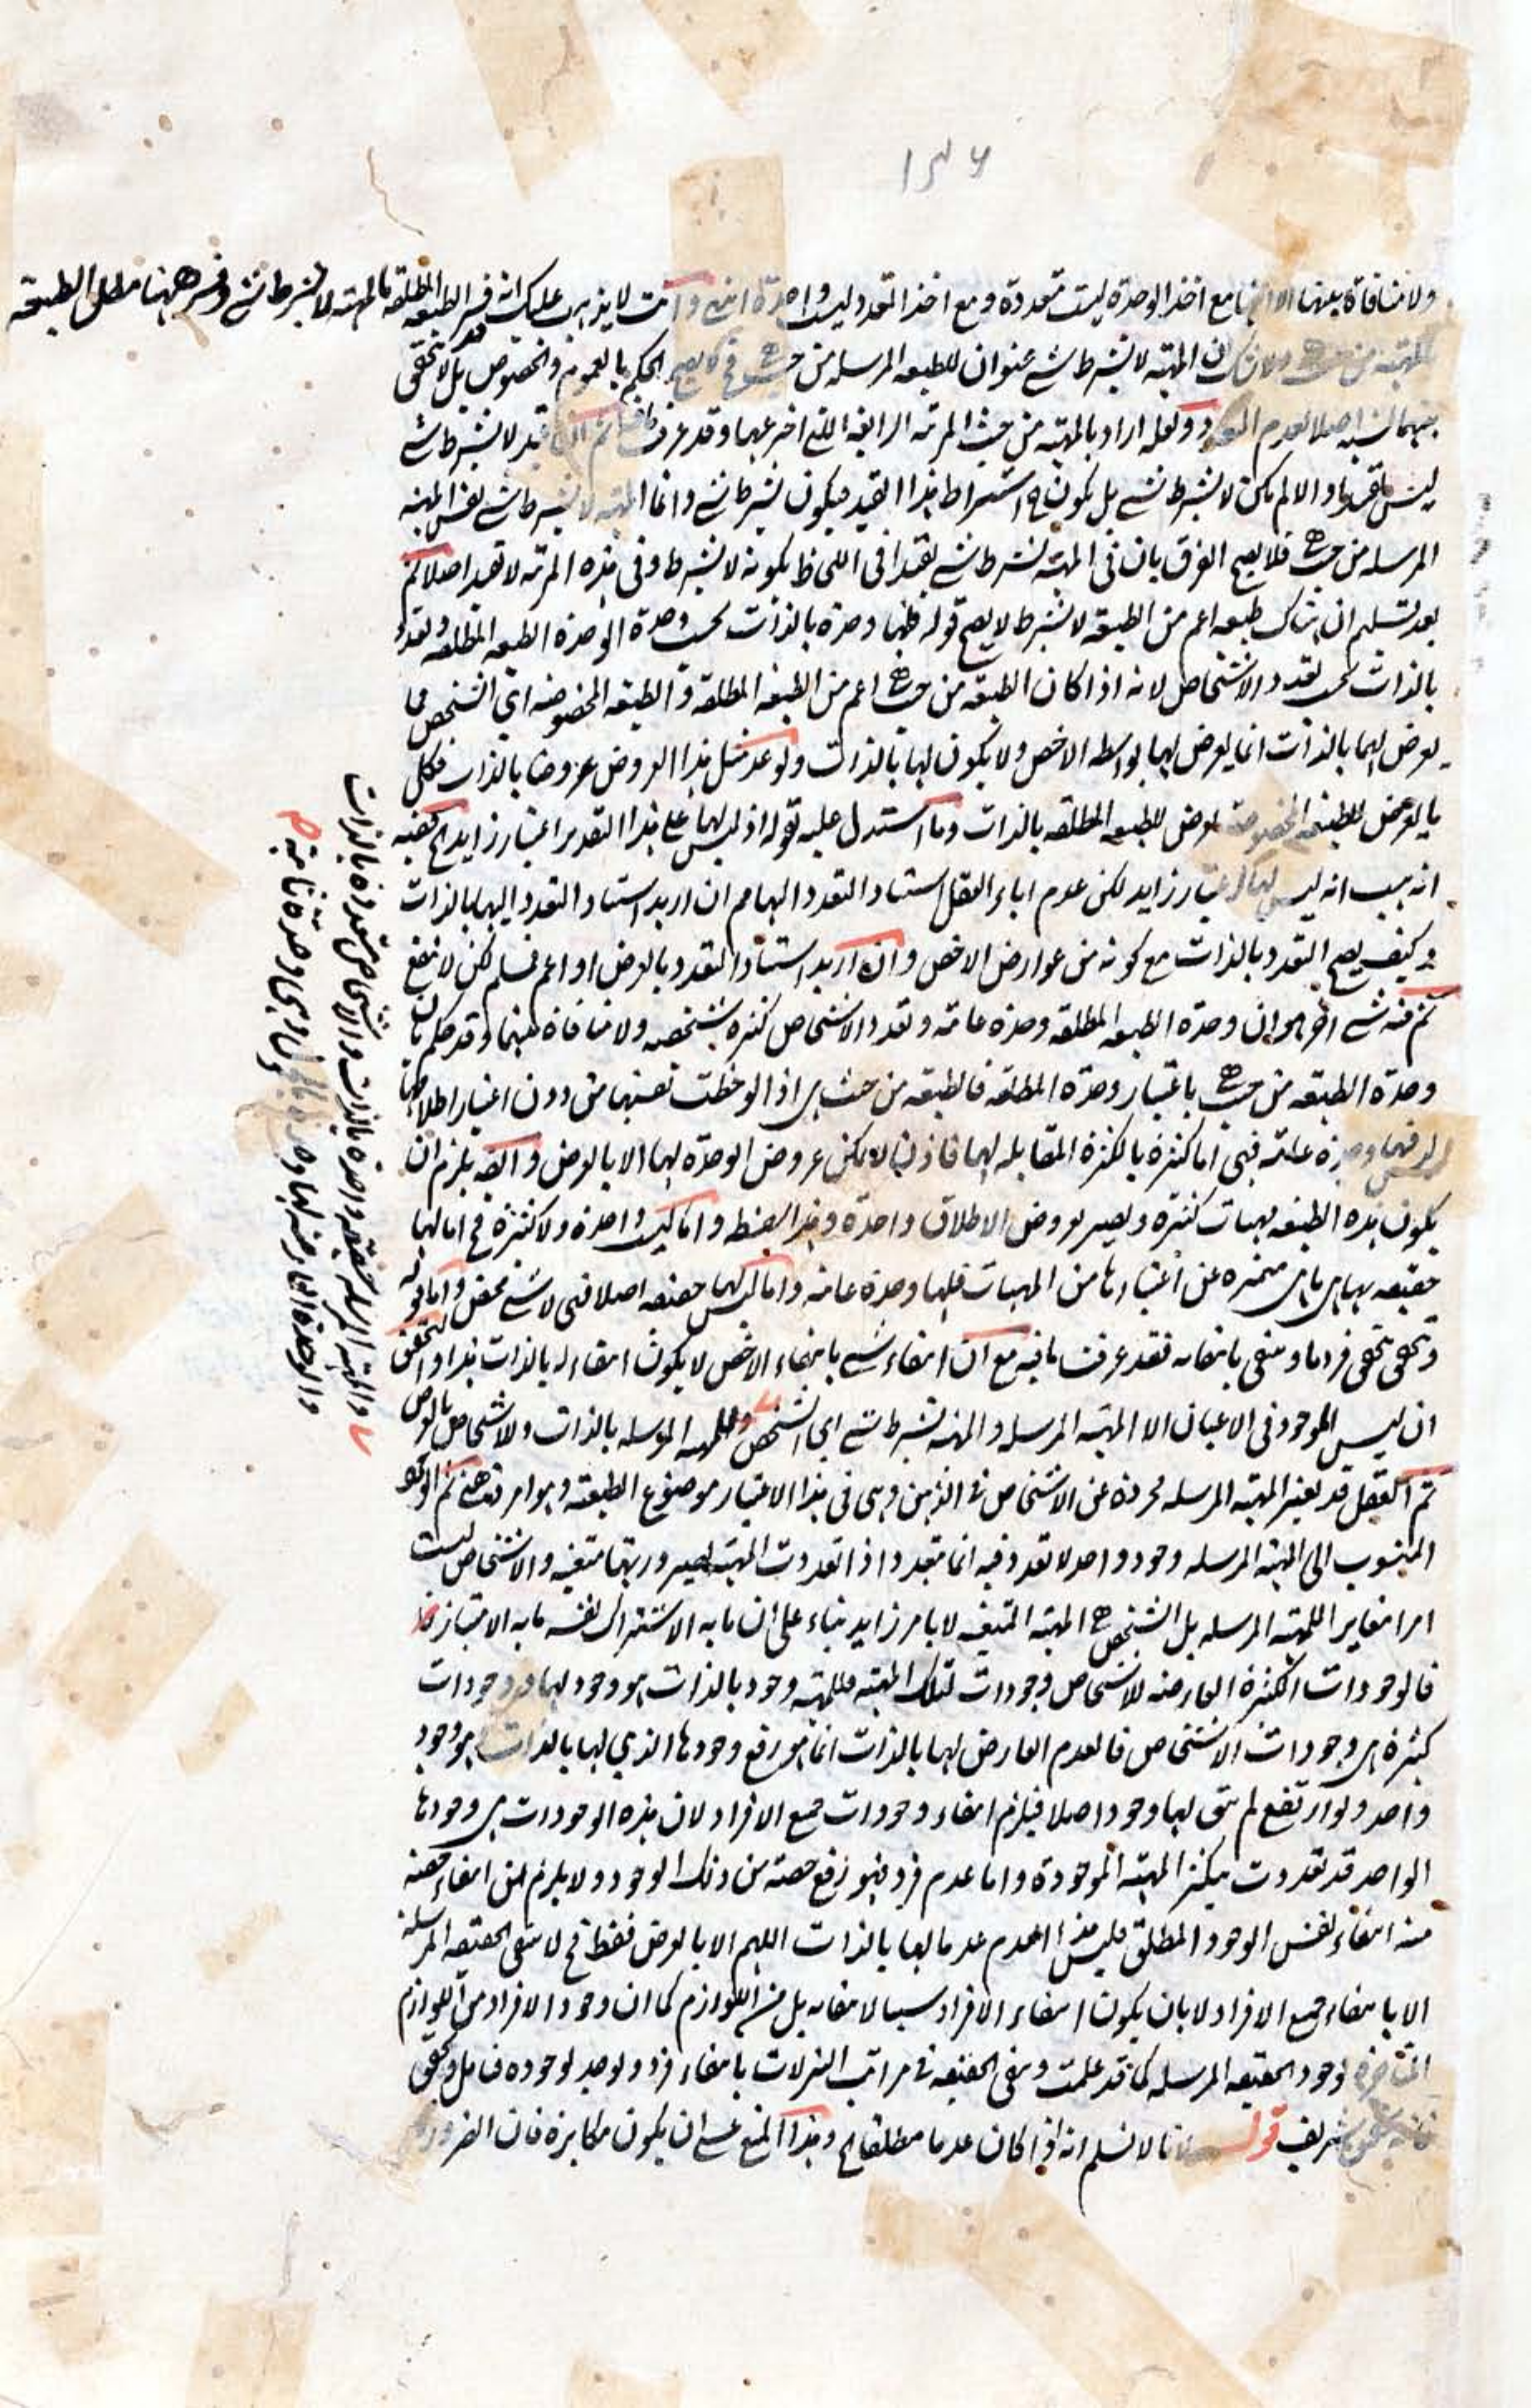 ١٣٦
ولا منافاة بينهما الا انها مع اخذ الوحدة ليست متعددة ومع اخذ التعدد ليست واحدة انتهى وانت لا يذهب عليك انه فسر الطبيعة المطلقة بالمهية لا بشرط شئ وفسر ههنا مطلق الطبيعة
بالمهية من حيث هي ولا شك ان المهية لا بشرط شئ عنوان للطبيعة المرسلة من حيث هي فح لا يصح الحكم بالعموم والخصوص بل لا يتحقق
بينهما النسبة اصلا لعدم التعدد ولعله اراد بالمهية من حيث المرتبة الرابعة التي اخترعها وقد عرفت ثم ان قيد لا بشرط شئ
ليس قيدا والا لم يكن لا بشرط شئ بل يكون اشتراط بهذا القيد فيكون بشرط شئ وانما المهية لا بشرط شئ نفس المهية
المرسلة من حيث هي فلا يصح الفرق بان في المهية لا بشرط شئ تقييدا في اللحاظ بكونه لا بشرط وفي هذه المرتبة لا تقييد اصلا ثم
بعد تسليم ان هناك طبيعة اعم من الطبيعة لا بشرط لا يصح قوله فلها وحدة بالذات بحسب وحدة الطبيعة المطلقة وتعدد
بالذات بحسب تعدد الاشخاص لانه اذا كان الطبيعة من حيث هي اعم من الطبيعة المطلقة والطبيعة المخصوصة اي الشخص فما
يعرض لهما بالذات انما يعرض لها بواسطة الاخص ولا يكون لها بالذات ولو عد مثل هذا العروض عروضا بالذات فكل
ما يعرض للطبيعة المخصوصة يعرض للطبيعة المطلقة بالذات وما استدل عليه بقوله اذ ليس لها على هذا التقدير اعتبار زايد الخ ففيه
انه هب انه ليس لها اعتبار زايد لكن عدم اباء العقل استناد التعدد اليها مم ان اريد استناد التعدد اليها بالذات
وكيف يصح التعدد بالذات مع كونه من عوارض الاخص وان اريد استناد التعدد بالعرض او اعم فمسلم لكن لا ينفع
ثم فيه شئ اخر هو ان وحدة الطبيعة المطلقة وحدة عامة وتعدد الاشخاص كثرة شخصية ولا منافاة بينهما وقد حكم بان
وحدة الطبيعة من حيث هي باعتبار وحدة المطلقة فالطبيعة من حيث هي اذا لوحظت نفسها من دون اعتبار اطلاقها
ليس فيها وحدة عامة فهي اما كثرة بالكثرة المقابلة لها فاذن لا يمكن عروض الوحدة لها الا بالعرض وايضا يلزم ان
يكون هذه الطبيعة مهيات كثيرة ويصير بعروض الاطلاق واحدة وهذا سفسطة واما ليس واحدة ولا كثرة فح اما لها
حقيقة بها هي ما هي متميزة عن اغيارها من المهيات فلها وحدة عامة واما ليس لها حقيقة اصلا فهي لا شئ محض واما قوله
وتحقق بتحقق فرد ما وينتفى بانتفائه فقد عرفت ما فيه مع ان انتفاء شئ بانتفاء الاخص لا يكون انتفاء له بالذات هذا والتحقيق
ان ليس الموجود في الاعيان الا المهية المرسلة والمهية بشرط شئ اي الشخص وللمهية المرسلة بالذات وللاشخاص بالعرض
ثم العقل قد يعتبر المهية المرسلة مجردة عن الاشخاص في الذهن وهي في هذا الاعتبار موضوع الطبيعية وهو امر ذهني ثم الوجود
المنسوب الى المهية المرسلة وجود واحد لا تعدد فيه انما يتعدد اذا تعددت المهية بصيرورتها متعينة والاشخاص ليست
امرا مغايرا للمهية المرسلة بل الشخص هي المهية المتعينة لا بامر زايد بناء على ان ما به الاشتراك نفسه ما به الامتياز
فالوجودات الكثيرة العارضة للاشخاص وجودات لتلك المهية فللمهية وجود بالذات هو وجود لها ووجودات
كثيرة هي وجودات الاشخاص فالعدم العارض لها بالذات انما هو رفع وجودها الذي لها بالذات وهو وجود
واحد ولو ارتفع لم يبق لها وجود اصلا فيلزم انتفاء وجودات جميع الافراد لان هذه الوجودات هي وجودها
الواحد قد تعددت بتكثر المهية الموجودة واما عدم فرد فهو رفع حصة من ذلك الوجود ولا يلزم من انتفاء حصة
منه انتفاء نفس الوجود المطلق فليس هذا العدم عدما لها بالذات اللهم الا بالعرض فقط فح لا ينتفى الحقيقة المرسلة
الا بانتفاء جميع الافراد لا بان يكون انتفاء الافراد سببا لانتفائه بل من اللوازم كما ان وجود الافراد من اللوازم
المتاخرة لوجود الحقيقة المرسلة كما قد علمت وينتفى الحقيقة في مراتب التنزلات بانتفاء فرد ويوجد لوجوده فتامل
فانه شريف قوله لانا لا نسلم انه اذا كان عدما مطلقا الخ وهذا المنع عسى ان يكون مكابرة فان الضرورة
والمهية المرسلة حقيقة واحدة بالذات والاشخاص متعددة بالذات
والوحدة العارضة لها وحدة